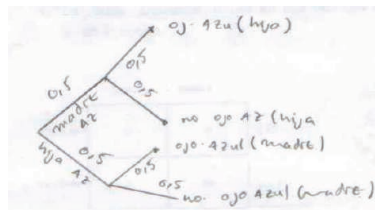 oj. Azul (hijo)
0,5
0,5
0,5
madre
Az
no ojo Az (hija
ojo. Azul (madre)
hija
Az
0,5
0,5
0,5
no. ojo Azul (madre)